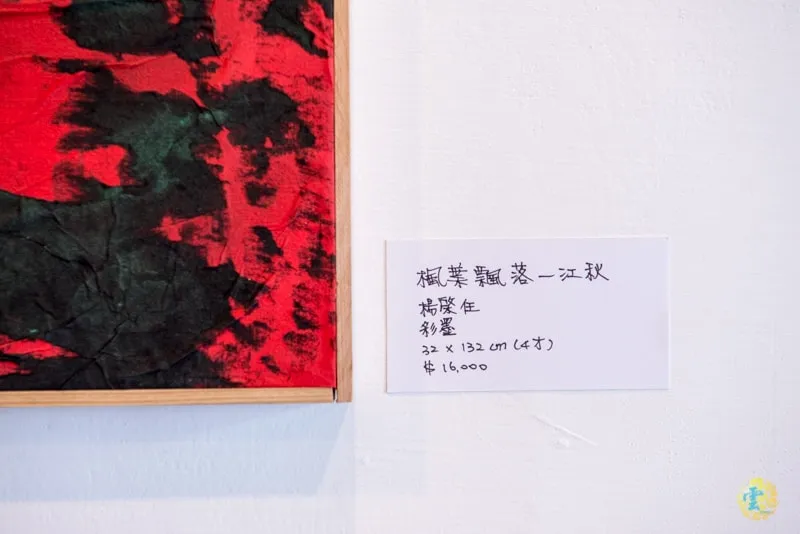 楓葉飄落一江秋
楊啓任
彩墨
32 x 132 cm (4才)
$ 16,000
雲